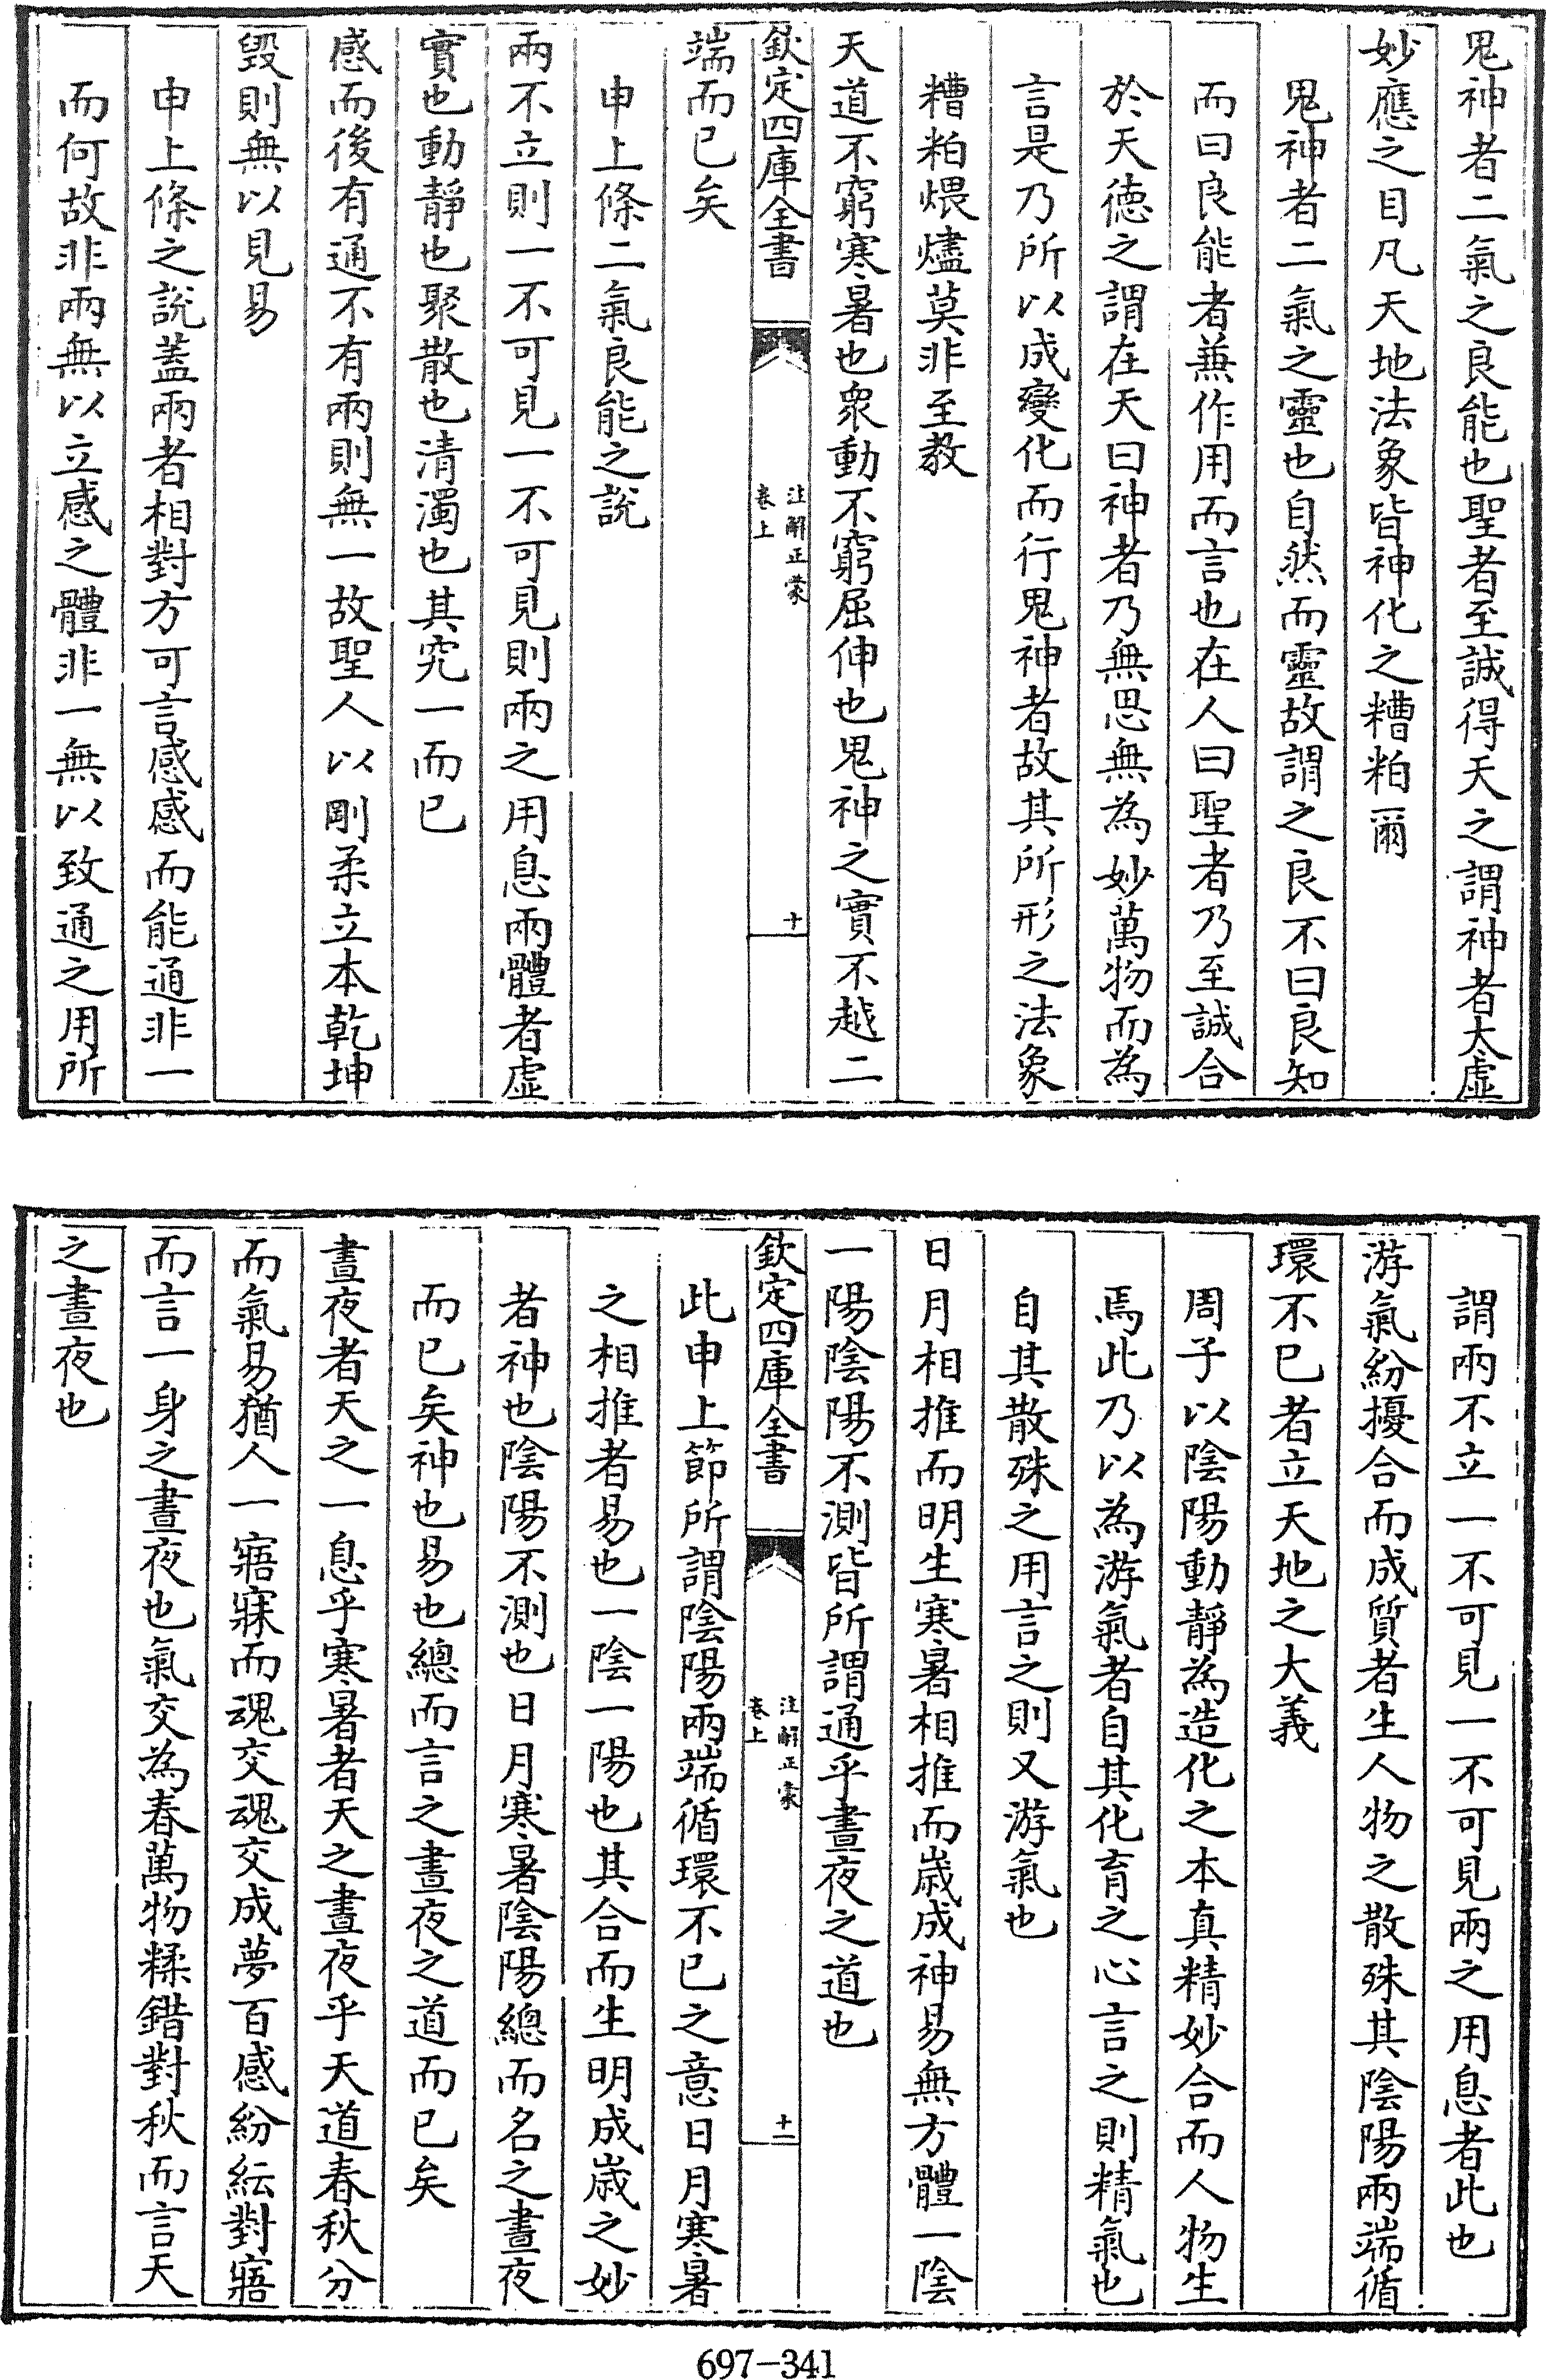 鬼神者二氣之良能也聖者至誠得天之謂神者太虛
妙應之目凡天地法象皆神化之糟粕爾
鬼神者二氣之靈也自然而靈故謂之良不曰良知
而曰良能者兼作用而言也在人曰聖者乃至誠合
於天德之謂在天曰神者乃無思無為妙萬物而為
言是乃所以成變化而行鬼神者故其所形之法象
糟粕煨燼莫非至教
天道不窮寒暑也衆動不窮屈伸也鬼神之實不越二
欽定四庫全書
注解正蒙
卷上
十
端而已矣
申上條二氣良能之說
兩不立則一不可見一不可見則兩之用息兩體者虛
實也動靜也聚散也清濁也其究一而已
感而後有通不有兩則無一故聖人以剛柔立本乾坤
毀則無以見易
申上條之說蓋兩者相對方可言感感而能通非一
而何故非兩無以立感之體非一無以致通之用所
謂兩不立一不可見一不可見兩之用息者此也
游氣紛擾合而成質者生人物之散殊其陰陽兩端循
環不已者立天地之大義
周子以陰陽動靜為造化之本真精妙合而人物生
焉此乃以為游氣者自其化育之心言之則精氣也
自其散殊之用言之則又游氣也
日月相推而明生寒暑相推而歲成神易無方體一陰
一陽陰陽不測皆所謂通乎晝夜之道也
欽定四庫全書
注解正蒙
卷上
十一
此申上節所謂陰陽兩端循環不已之意日月寒暑
之相推者易也一陰一陽也其合而生明成歲之妙
者神也陰陽不測也日月寒暑陰陽總而名之晝夜
而已矣神也易也總而言之晝夜之道而已矣
晝夜者天之一息乎寒暑者天之晝夜乎天道春秋分
而氣易猶人一寤寐而魂交魂交成夢百感紛紜對寤
而言一身之晝夜也氣交為春萬物糅錯對秋而言天
之晝夜也
697-341